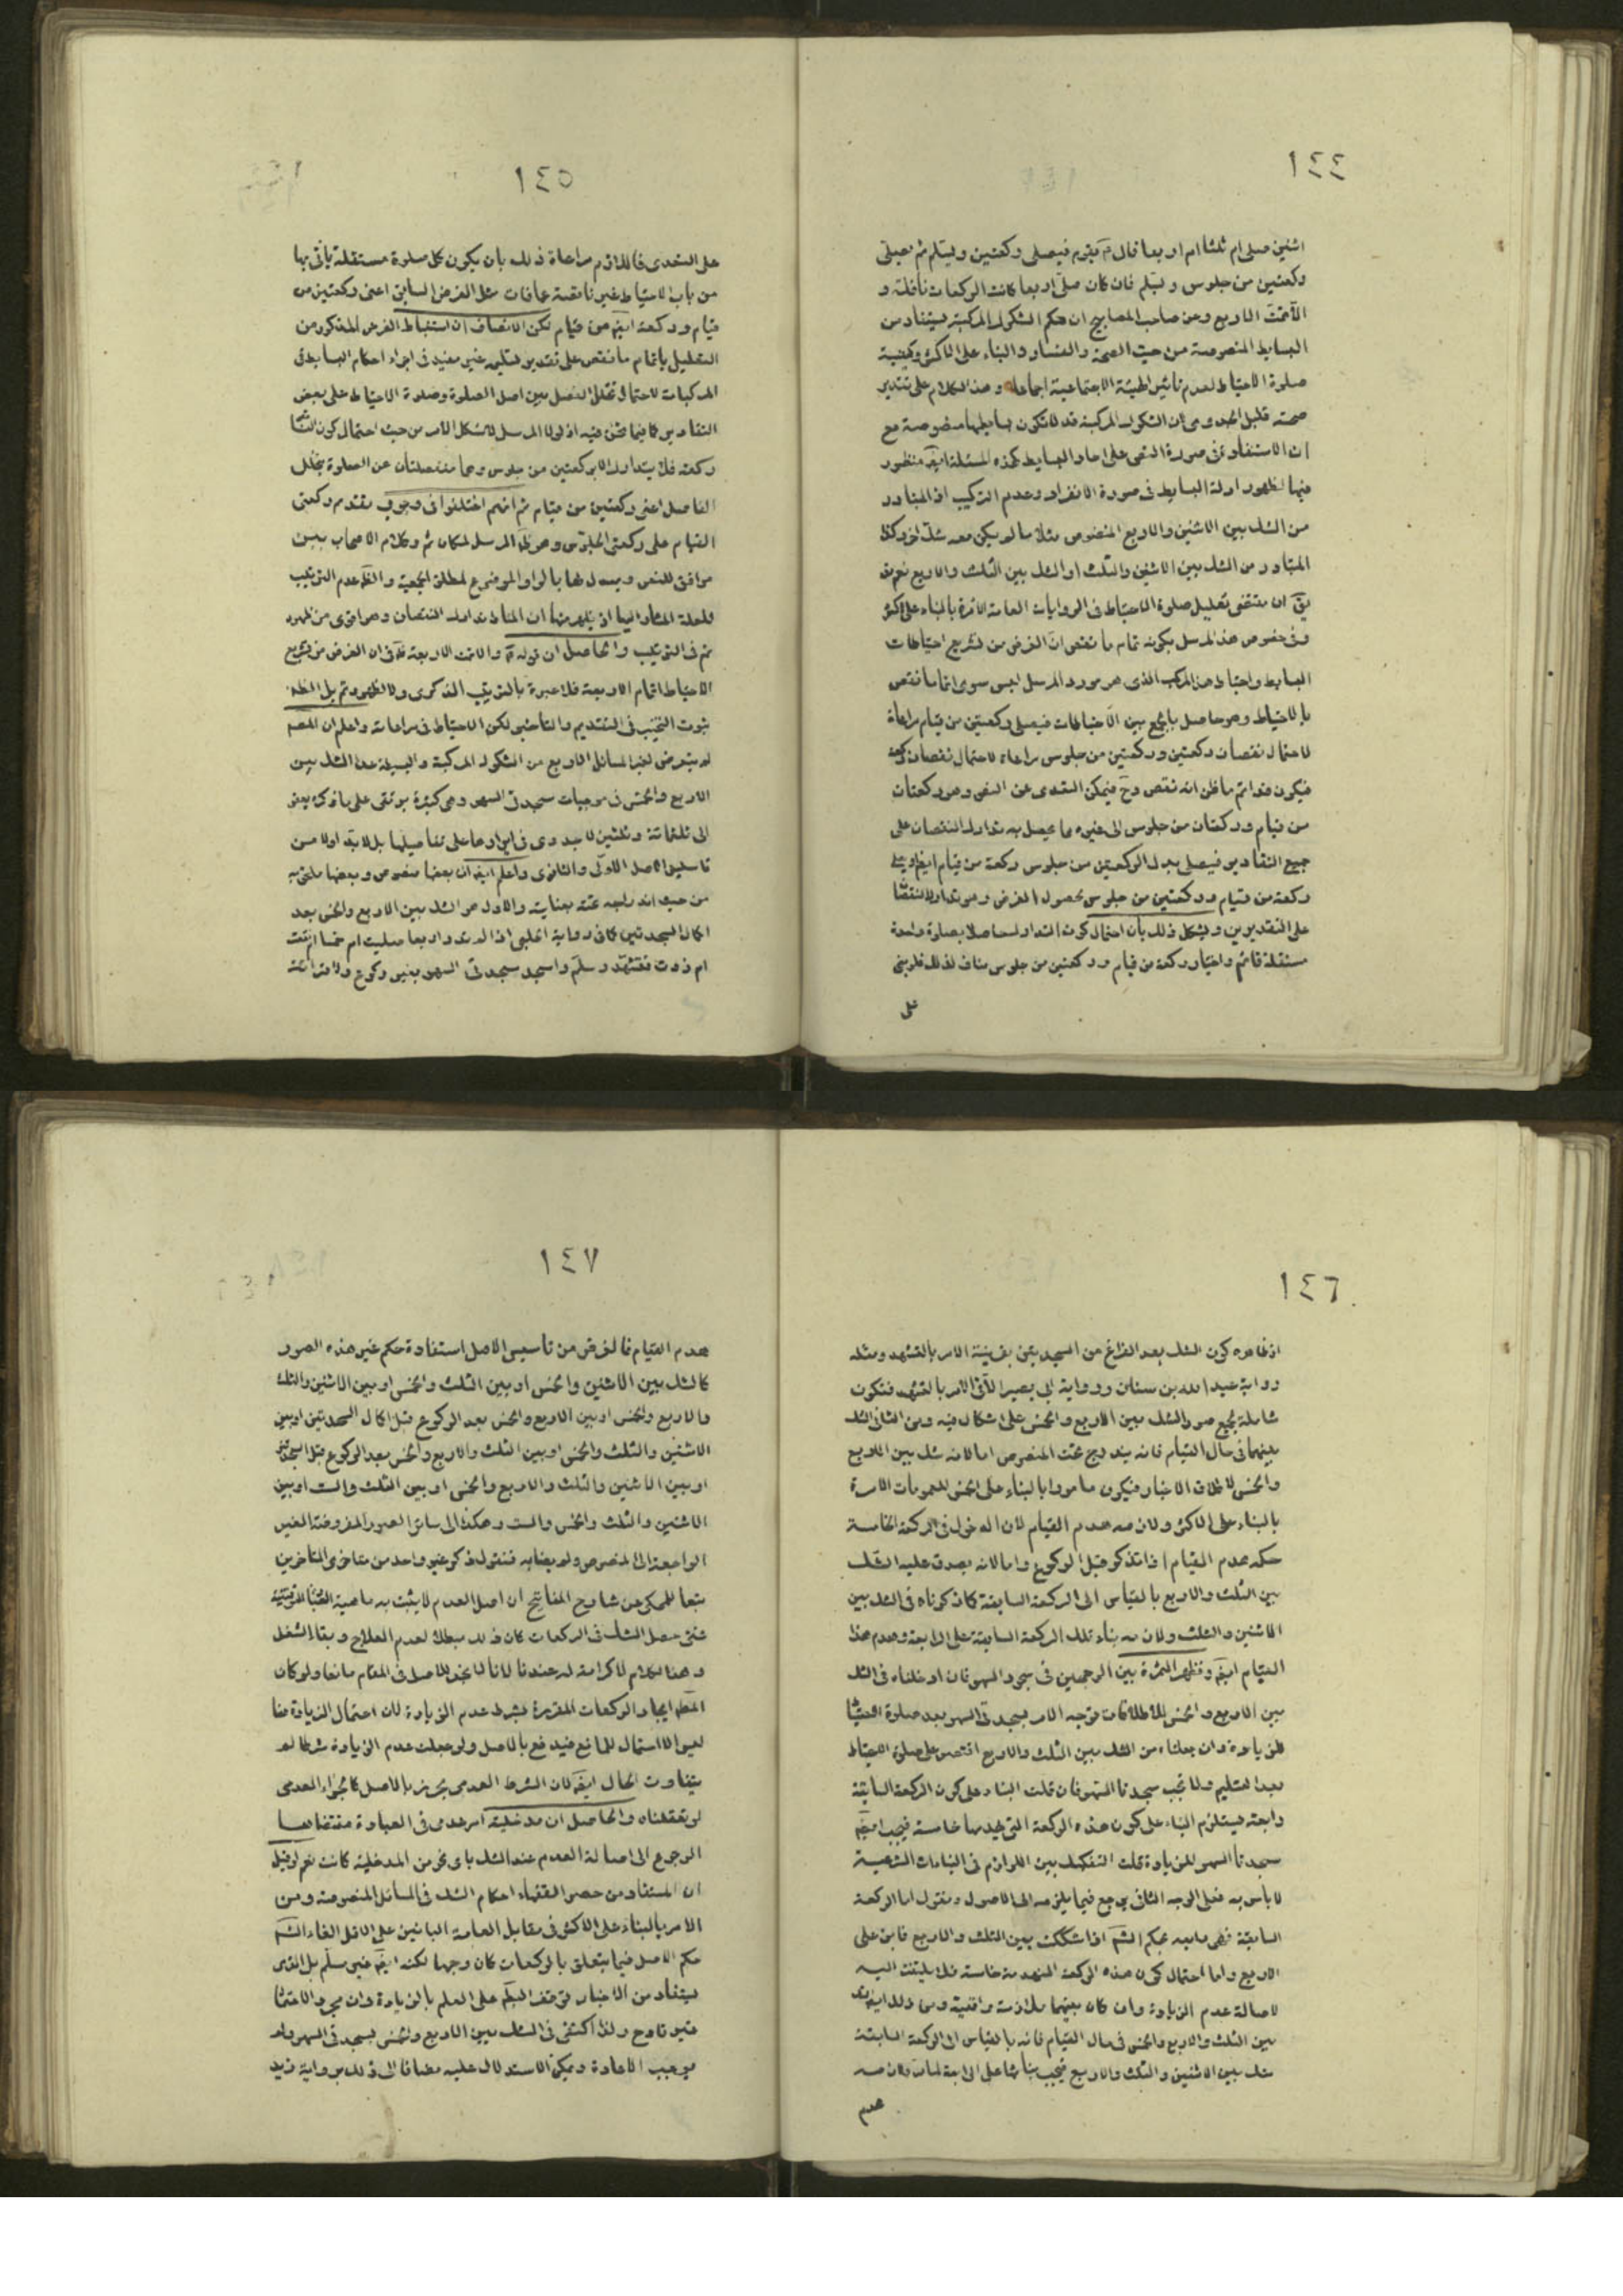 ١٤٤
اثنين صلى ام ثلثا ام اربعا قال يقوم فيصلى ركعتين ويسلم ثم يصلى
ركعتين من جلوس ويسلم فان كان صلى اربعا كانت الركعات نافلة و
الا تمت الاربع وعن صاحب المصابيح ان حكم الشكوك المركبة يستفاد من
البسايط المنصوصة من حيث الصحة والفساد والبناء على الاكثر وكيفية
صلوة الاحتياط لعدم تاثير الهيئة الاجتماعية اجماعا وهذا الكلام على تقدير
صحته قليل الجدوى لان الشكوك المركبة قد لا تكون بسايطها منصوصة مع
ان الاستفادة فى صورة النص على احاد البسايط كهذه المسئلة ايضا منظور
فيها لظهور ادلة البسايط فى صورة الانفراد وعدم التركيب اذ المتبادر
من الشك بين الاثنين والاربع المنصوص مثلا ما لم يكن معه شك اخر وكذا
المتبادر من الشك بين الاثنين والثلث او الشك بين الثلث والاربع نعم
ان مقتضى تعليل صلوة الاحتياط فى الروايات العامة الآمرة بالبناء على الاكثر
وفى خصوص هذا المرسل بكونه تمام ما نقص ان الغرض من تشريع احتياطات
البسايط واحتياط هذا المركب الذى هو مورد المرسل ليس سوى اتمام ما نقص
بالاحتياط وهو حاصل بالجمع بين الاحتياطات فيصلى ركعتين من قيام مراعاة
لاحتمال نقصان ركعتين وركعتين من جلوس مراعاة لاحتمال نقصان ركعة
فيكون قد اتم ما ظن انه نقص وح فيمكن التعدى عن النص وهو ركعتان
من قيام وركعتان من جلوس الى غيره مما يحصل به تدارك النقصان على
جميع التقادير فيصلى بدل الركعتين من جلوس ركعة من قيام
ركعة من قيام وركعتين من جلوس لحصول الغرض وهو تدارك
على التقديرين ويشكل ذلك بان احتمال كون التدارك حاصلا بصلوة واحدة
مستقلة قائم واختيار ركعة من قيام وركعتين من جلوس مناف لذلك فلو بنى
على
١٤٥
على التعدى فاللازم مراعاة ذلك بان يكون كل صلوة مستقلة يأتى بها
من باب الاحتياط غير ناقصة عما فات مثل الفرض السابق اعنى ركعتين من
قيام وركعة ايضا من قيام لكن الانصاف ان استنباط الغرض المذكور من
التعليل باتمام ما نقص على تقدير تسليمه غير مفيد فى اجراء احكام البسايط فى
المركبات لاحتمال تخلل الفصل بين اصل الصلوة وصلوة الاحتياط على بعض
التقادير كما فيما نحن فيه اذ لولا المرسل لاشكل الامر من حيث احتمال كون
ركعة فلا يتدارك الا بركعتين من جلوس وهما منفصلتان عن الصلوة بتخلل
الفاصل اعنى ركعتين من قيام ثم انهم اختلفوا فى وجوب تقديم ركعتى
القيام على ركعتى الجلوس وهو ظ المرسل لمكان ثم وكلام الاصحاب بين
موافق للنص ومبدل لها بالواو الموضوع لمطلق الجمعية والظ عدم الترتيب
للعلة المشار اليها اذ يظهر منها ان المناط تدارك النقصان وهو اقوى من ظهور
ثم فى الترتيب والحاصل ان قوله والا تمت الاربعة ظ فى ان الغرض من تشريع
الاحتياط اتمام الاربعة فلا عبرة بالترتيب الذكرى ولا لظهور ثم بل الظ
ثبوت التخيير فى التقديم والتاخير لكن الاحتياط فى مراعاته واعلم ان المصـ
لم يتعرض لغير المسائل الاربع من الشكوك المركبة والبسيطة عدا الشك بين
الاربع والخمس فى موجبات سجدتى السهو وهى كثيرة يرتقى على ما ذكره بعض
الى ثلثمائة وثلثين لا جدوى فى ايرادها على تفاصيلها بل لابد اولا من
تاسيس الاصل الاولى والثانوى واعلم ايضا ان بعضها منصوص وبعضها ملحق به
من حيث اندراجه تحته بعناية والاول هو الشك بين الاربع والخمس بعد
اكمال السجدتين كما فى رواية الحلبى اذا لم تدر اربعا صليت ام خمسا ام نقصت
ام زدت فتشهد وسلم واسجد سجدتى السهو بغير ركوع ولا قرائة
١٤٦
اذ ظاهره كون الشك بعد الفراغ من السجدتين بقرينة الامر بالتشهد ومثله
رواية عبد الله بن سنان ورواية ابى بصير الآتى الامر بالتشهد فتكون
شاملة لجميع صور الشك بين الاربع والخمس على اشكال فيه ومن الثانى الشك
بينهما فى حال القيام فانه يندرج تحت المنصوص اما لانه شك بين الاربع
والخمس لاطلاق الاخبار فيكون مامورا بالبناء على الخمس للعمومات الآمرة
بالبناء على الاكثر ولازمه هدم القيام لان الدخول فى الركعة الخامسة
حكمه هدم القيام اذا تذكر قبل الركوع واما لانه يصدق عليه الشك
بين الثلث والاربع بالقياس الى الركعة السابقة كما ذكرناه فى الشك بين
الاثنين والثلث ولازمه بناء تلك الركعة السابقة على الرابعة وهدم هذا
القيام ايضا وتظهر الثمرة بين الوجهين فى سجود السهو فان ادخلناه فى الشك
بين الاربع والخمس للاطلاقات توجه الامر بسجدتى السهو بعد صلوة
للزيادة وان جعلناه من الشك بين الثلث والاربع اقتصر على صلوة الاحتياط
بعد التسليم ولا تجب سجدتا السهو فان قلت البناء على كون الركعة السابقة
رابعة يستلزم البناء على كون هذه الركعة التى يهدمها خامسة فيجب ايضا
سجدتا السهو للزيادة قلت التفكيك بين اللوازم فى البناءات الشرعية
لا بأس به فعلى الوجه الثانى يرجع فيما يلزمه الى الاصول ونقول اما الركعة
السابقة فهى رابعة بحكم الشرع اذا شككت بين الثلث والاربع فابن على
الاربع واما احتمال كون هذه الركعة المنهدمة خامسة فلا يلتفت اليه
لاصالة عدم الزيادة وان كان بينهما ملازمة واقعية ومن ذلك
بين الثلث والاربع والخمس فى حال القيام فانه بالقياس الى الركعة السابقة
شك بين الاثنين والثلث والاربع فيجب بنائها على الرابعة لما مر ولازمه
هدم
١٤٧
هدم القيام فالغرض من تاسيس الاصل استفادة حكم غير هذه الصور
كالشك بين الاثنين والخمس او بين الثلث والخمس او بين الاثنين والثلث
والاربع والخمس او بين الاربع والخمس بعد الركوع قبل اكمال السجدتين او بين
الاثنين والثلث والخمس او بين الثلث والاربع والخمس بعد الركوع قبل السجدتين
او بين الاثنين والثلث والاربع والخمس او بين الثلث والست او بين
الاثنين والثلث والخمس والست وهكذا الى سائر الصور المفروضة الغير
الراجعة الى المنصوص ولو بعناية فنقول ذكر غير واحد من متاخرى المتاخرين
تبعا للمحكى عن شارح المفاتيح ان اصل العدم لا يثبت به ماهية
فمتى حصل الشك فى الركعات كان ذلك مبطلا لعدم العلاج وبقاء الشغل
وهذا الكلام لا كرامة له عندنا لانا لا نجد للاصل فى المقام مانعا ولو كان
ايجاد الركعات المقررة بشرط عدم الزيادة لان احتمال الزيادة هنا
ليس الا احتمال المانع فيدفع بالاصل ولو جعلت عدم الزيادة شرطا لم
يتفاوت الحال ايضا لان الشرط العدمى يحرز بالاصل كالجزء العدمى
لو تعقلناه والحاصل ان مدخلية امر عدمى فى العبادة مقتضاها
الرجوع الى اصالة العدم عند الشك باى نحو من المدخلية كانت نعم لو قيل
ان المستفاد من حصر الفقهاء احكام الشك فى المسائل المنصوصة ومن
الامر بالبناء على الاكثر فى مقابل العامة البانين على الاقل الغاء الشرع
حكم الاصل فيما يتعلق بالركعات كان وجها لكنه ايضا غير مسلم بل الذى
يستفاد من الاخبار توقف الحكم على العلم بالزيادة وان مجرد الاحتمال
غير قادح ولذا اكتفى فى الشك بين الاربع والخمس بسجدتى السهو ولم
يوجب الاعادة ويمكن الاستدلال عليه مضافا الى ذلك برواية زيد